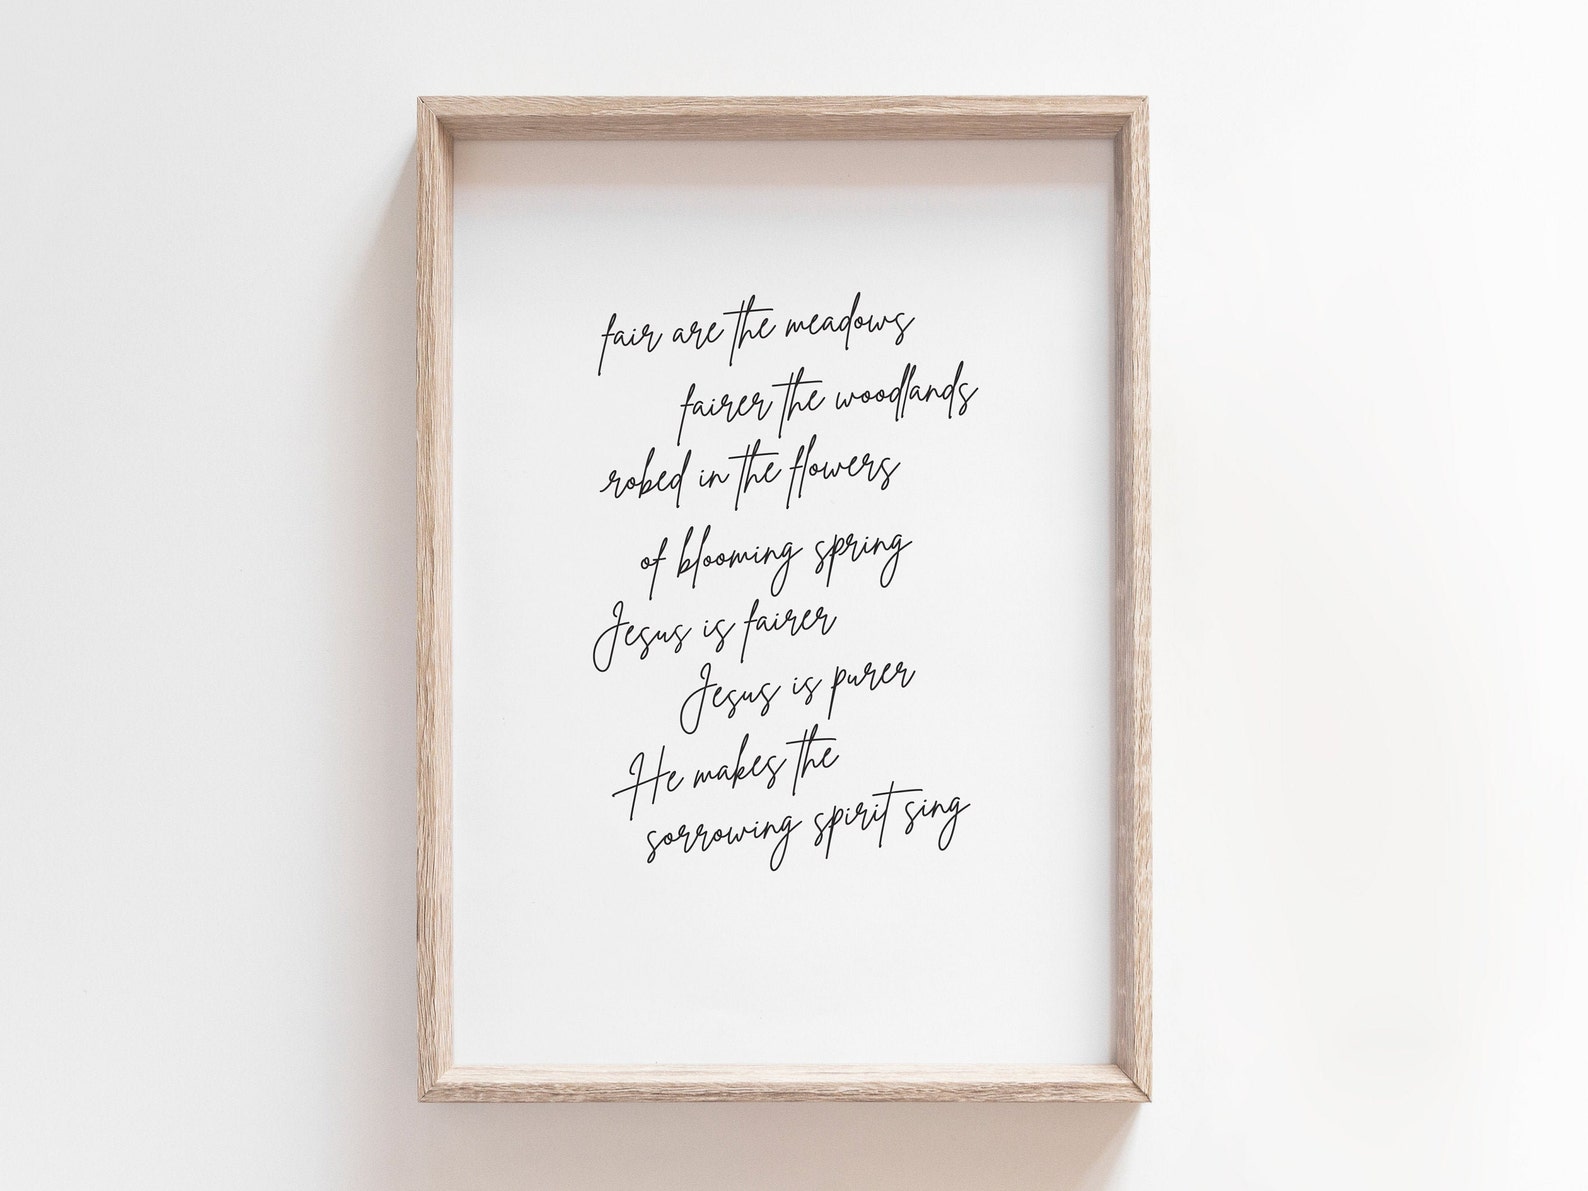 fair are the meadows
fairer the woodlands
robed in the flowers
of blooming spring
Jesus is fairer
Jesus is purer
He makes the
sorrowing spirit sing